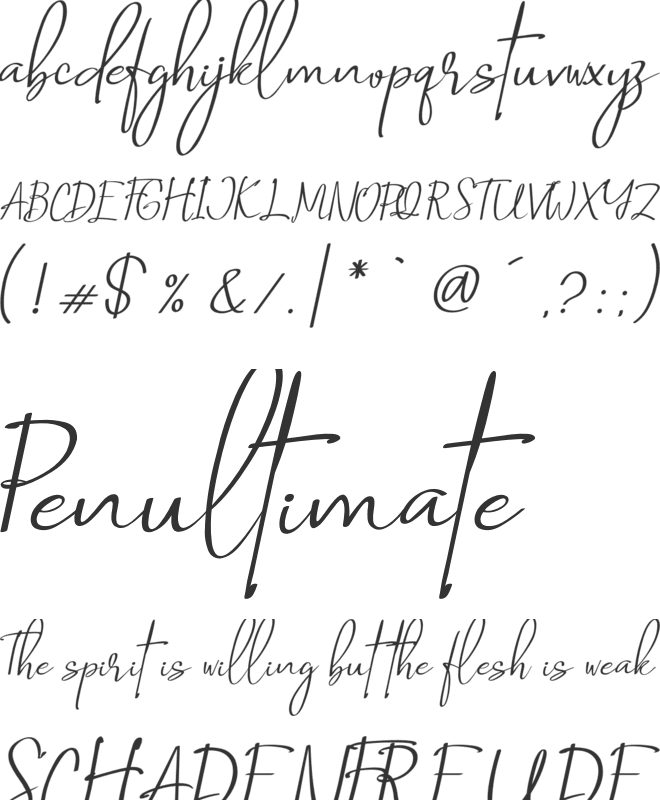 abcdefghijklmnopqrstuvwxyz
ABCDEFGHIJKLMNOPQRSTUVWXYZ
(!#$%&/.|*`@´,?:;)
Penultimate
The spirit is willing but the flesh is weak
SCHADENFREUDE